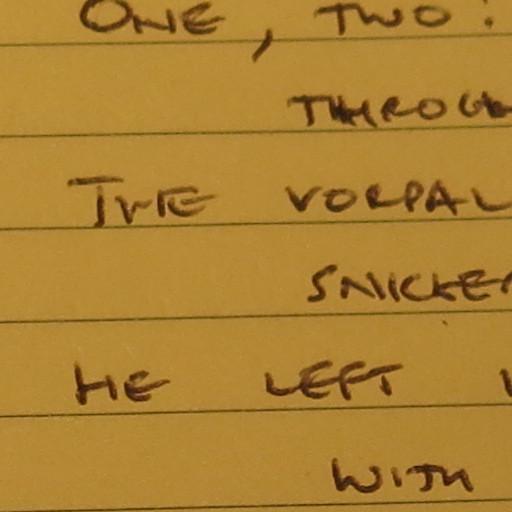 ONE, TWO!
THROUGH
THE VORPAL
SNICKE
HE LEFT
WITH